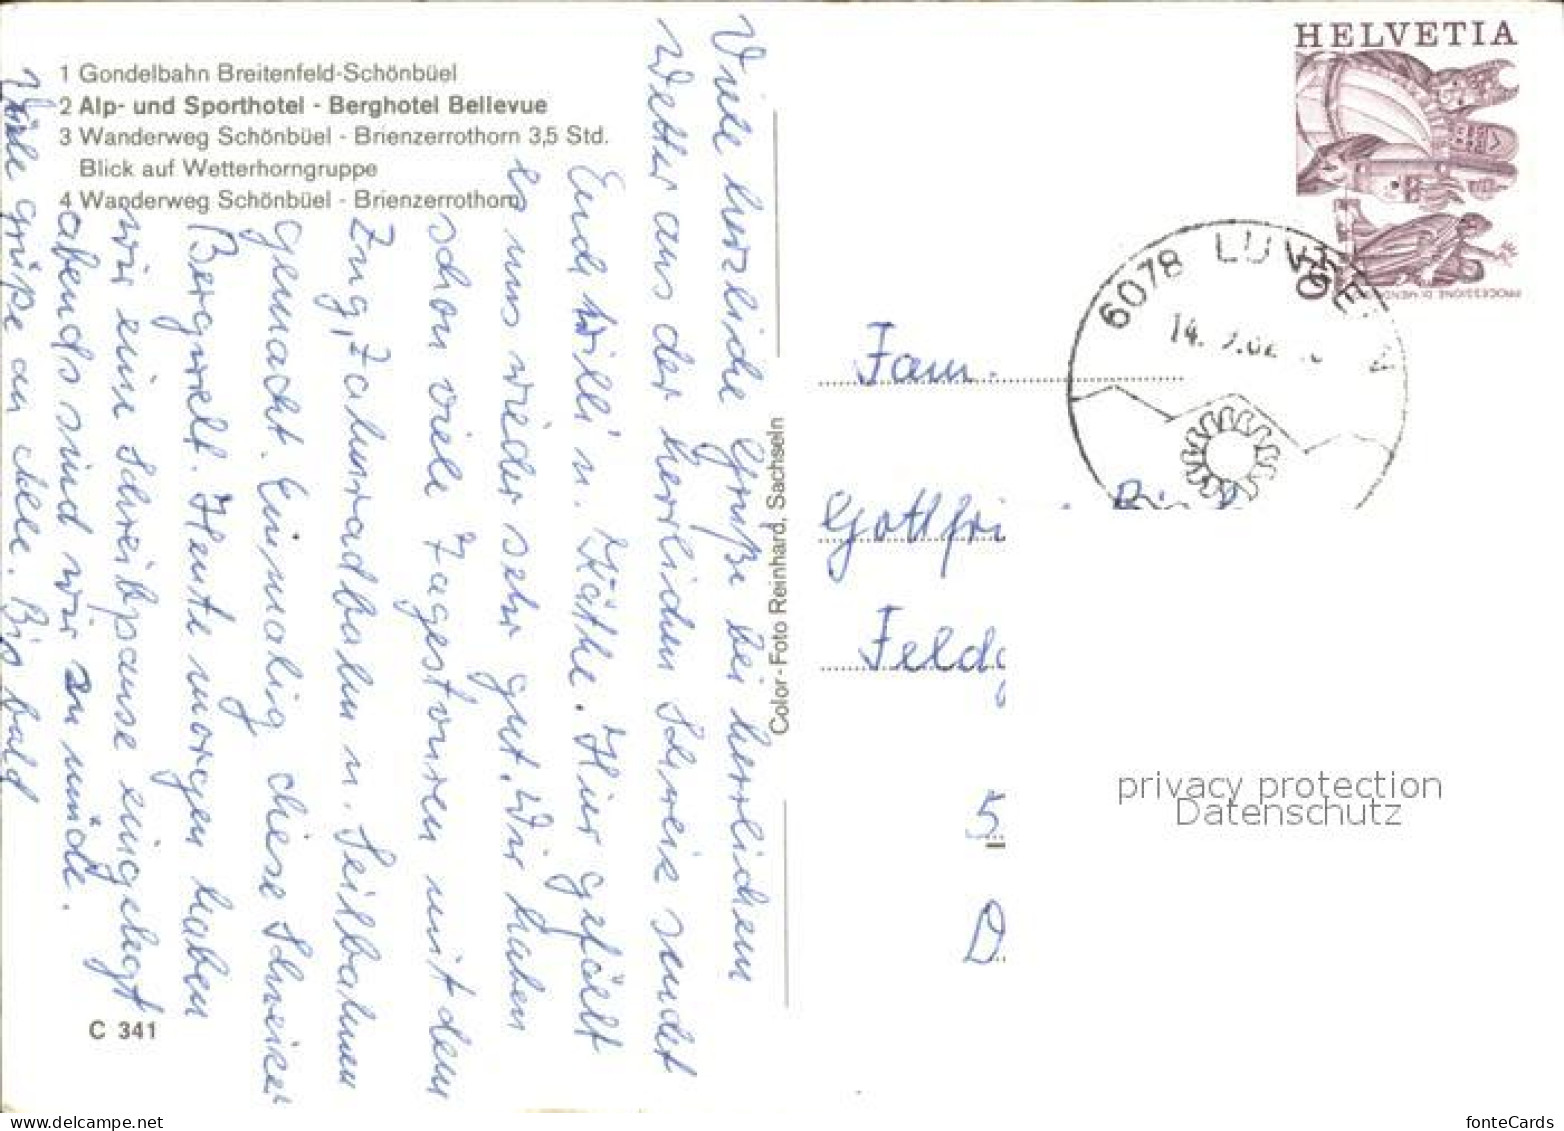 1 Gondelbahn Breitenfeld-Schönbüel
2 Alp- und Sporthotel - Berghotel Bellevue
3 Wanderweg Schönbüel - Brienzerrothorn 3,5 Std.
Blick auf Wetterhorngruppe
4 Wanderweg Schönbüel - Brienzerrothorn
Viele herzliche Grüße bei herrlichem
Wetter aus der herrlichen Schweiz sendet
Euch Willi u. Käthe. Hier gefällt
es uns wieder sehr gut. Wir haben
schon viele Tagestouren mit dem
Zug, Zahnradbahn u. Seilbahnen
gemacht. Einmalig diese Schweizer
Bergwelt. Heute morgen haben
wir eine Schreibpause eingelegt
abends sind wir zu müde.
Viele grüße an alle. Bis bald
C 341
Color-Foto Reinhard, Sachseln
HELVETIA
PROCESSIONE DI
6078
14.
Fam.
Gottfri
Feldg
5
D
privacy protection
Datenschutz
www.delcampe.net
fonteCards